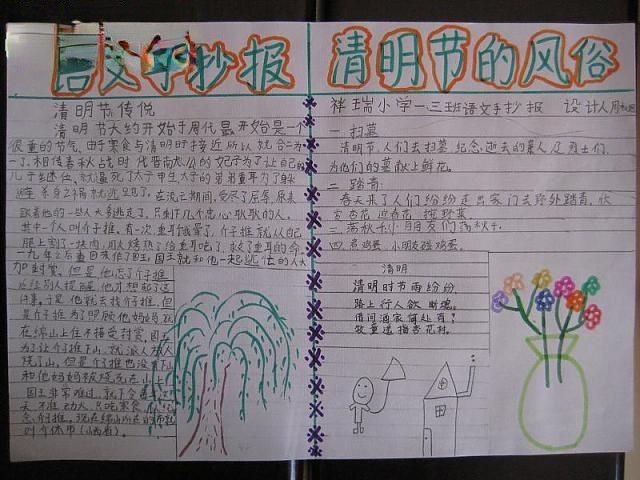 语文手抄报
清明节传说
清明节大约开始于周代最开始是一个
很重的节气,由于寒食与清明时接近所以就合二为
一了,相传春秋战时代晋南公的妃子为了让自己的
儿子继位,就逼死了太子申生太子的弟弟重耳为了躲
避
在流亡期间,受尽了屈辱,原来
跟着他的一些人大多逃走了,只剩下几个忠心耿耿的人,
其中一个叫介子推,有一次,重耳饿晕了,介子推就从自己
腿上割了一块肉,用火烤熟了给重耳吃了,救了重耳的命
一九年之后重耳来作了国王,国王就和他一起逃亡的人大
加封赏,但是他忘了介子推
别人提醒他才想起了这
件事,于是他就去找介子推,但
是介子推为了照顾他妈妈就
在绵山上住不接受封赏,国王
为了让介子推下山,就派人放火
烧了山,但是介子推也没有下山
和他妈妈被烧死在山上
国王非常难过,就下令
天不准动火,只吃寒食
念介子推。现在绵山所在的市就
叫介休市(山西省)。
清明节的风俗
祥瑞小学一.三班语文手抄报 设计人周
一 扫墓
清明节,人们去扫墓 纪念 逝去的亲人及烈士们,
为他们的墓献上鲜花。
二 踏青
春天来了人们纷纷走出家门去野外踏青,欣
赏杏花 迎春花 挖野菜
三 荡秋千 小朋友们荡秋千。
四 煮鸡蛋 小朋友碰鸡蛋。
清明
清明时节雨纷纷,
路上行人欲断魂。
借问酒家何处有?
牧童遥指杏花村。